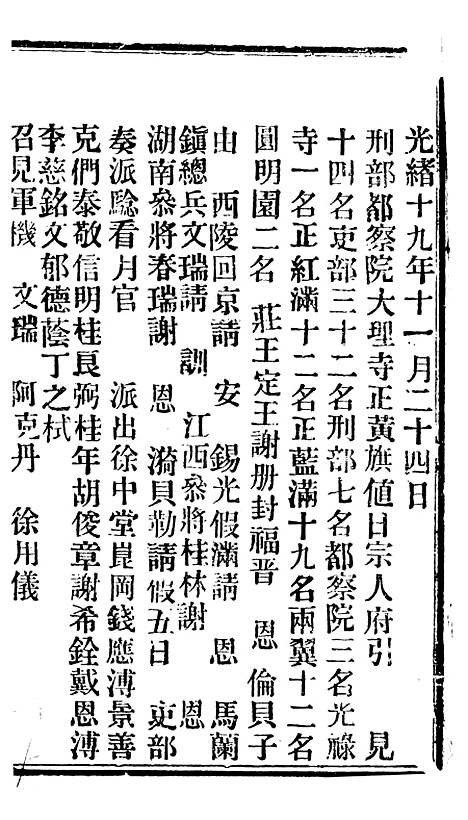 光緒十九年十一月二十四日
刑部都察院大理寺正黃旗値日宗人府引　見
十四名吏部三十二名刑部七名都察院三名光祿
寺一名正紅滿十二名正藍滿十九名兩翼十二名
圓明園二名　莊王定王謝册封福晉　恩倫貝子
由　西陵回京請　安　錫光假滿請　恩　馬蘭
鎭總兵文瑞請　訓　江西叅將桂林謝　恩
湖南叅將春瑞謝　恩　漪貝勒請假五日　吏部
奏派驗看月官　派出徐中堂崑岡錢應溥景善
克們泰敬信明桂良弼桂年胡俊章謝希銓戴恩溥
李慈銘文郁德蔭丁之栻
召見軍機　文瑞　阿克丹　徐用儀